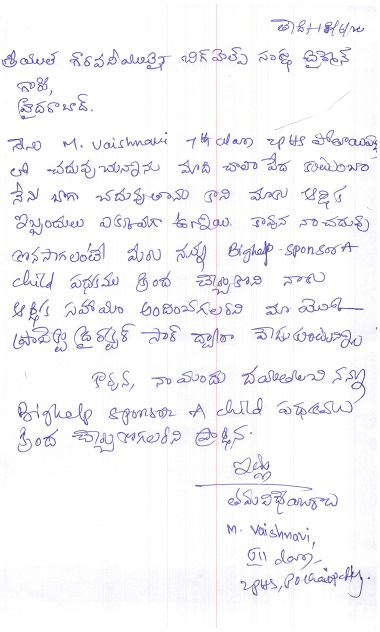 తేది :- 18/4/20
శ్రీయుత గౌరవనీయులైన బిగ్ హెల్ప్ సంస్థ చైర్మెన్
గారికి,
హైదరాబాద్.
నేను M. Vaishnavi 7th class ZPHS పోచంపల్లి
లో చదువుచున్నాను మాది చాలా పేద కుటుంబం
నేను బాగా చదువుతాను కాని మాకు ఆర్థిక
ఇబ్బందులు ఎక్కువగా ఉన్నాయి. కావున నా చదువు
కొనసాగలంటే మీరు నన్ను Bighelp - sponsor A
child పథకము క్రింద చేర్చుకొని నాకు
ఆర్థిక సహాయం అందించగలరని మా
ప్రాజెక్టు డైరెక్టర్ సార్ ద్వారా వేడుకుంటున్నాను
కావున, నా యందు దయతలచి నన్ను
Bighelp sponsor A child పథకము
క్రింద చేర్చుకోగలరని ప్రార్థన.
ఇట్లు
తమ విధేయురాలు
M. Vaishnavi,
VII class,
ZPHS, Pochampally.